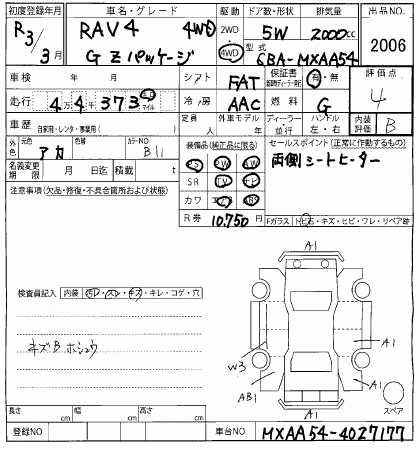 初度登録年月 車名・グレード 駆動 ドア数・形状 排気量 出品NO.
R3/3月 RAV4 4WD 2WD 5W 2000cc 2006
G Zパッケージ 4WD 型式 6BA-MXAA54
車検 年 月 シフト FAT 保証書 有・無 評価点
走行 4 4 373 km マイル 冷房 AAC 燃料 G 4
車歴 自家用・レンタ・事業用( ) 定員 人 外車モデル 年 ディーラー・並行 ハンドル 左・右 内装評価 B
外色 元色 アカ 色替 カラーNO B11 装備品(純正品に限る) セールスポイント(正常に作動するもの)
名義変更期限 月 日迄 積載 t PS PW AW 両側シートヒーター
注意事項(欠品・修復・不具合箇所および状態) SR TV ナビ
カワ エアB ABS
R券 10,750円 Fガラス トビ石・キズ・ヒビ・ワレ・リペア跡
A1
検査員記入 内装 汚レ・スレ・キズ・キレ・コゲ・穴
ネズB ホシュウ
W3 A1
AB1 A1
A1 スペア
長さ cm 幅 cm 高さ cm
登録NO 車台NO MXAA54-4027177